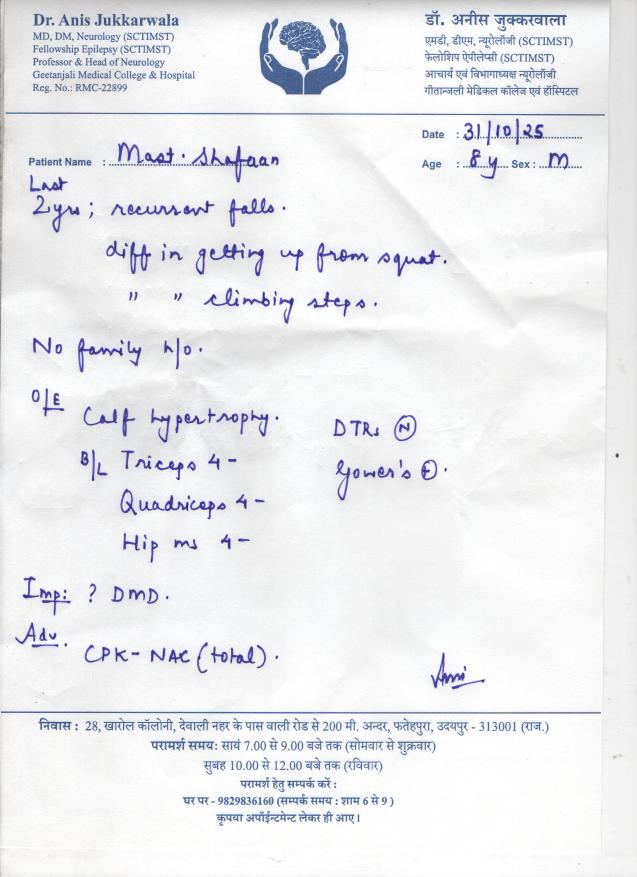 Dr. Anis Jukkarwala
MD, DM, Neurology (SCTIMST)
Fellowship Epilepsy (SCTIMST)
Professor & Head of Neurology
Geetanjali Medical College & Hospital
Reg. No.: RMC-22899
डॉ. अनीस जुक्करवाला
एमडी, डीएम, न्यूरोलॉजी (SCTIMST)
फेलोशिप ऐपीलेप्सी (SCTIMST)
आचार्य एवं विभागाध्यक्ष न्यूरोलॉजी
गीतान्जली मेडिकल कॉलेज एवं हॉस्पिटल
Date : 31/10/25
Patient Name : Mast. Shafaan
Age : 8 y Sex : M
Last
2 yrs; recurrent falls.
diff in getting up from squat.
" " climbing steps.
No family h/o.
O/E
Calf hypertrophy. DTRs (N)
B/L Triceps 4- Gower's (+).
Quadriceps 4-
Hip ms 4-
Imp: ? DMD.
Adv. CPK-NAC (total).
निवास : 28, खारोल कॉलोनी, देवाली नहर के पास वाली रोड से 200 मी. अन्दर, फतेहपुरा, उदयपुर - 313001 (राज.)
परामर्श समय: सायं 7.00 से 9.00 बजे तक (सोमवार से शुक्रवार)
सुबह 10.00 से 12.00 बजे तक (रविवार)
परामर्श हेतु सम्पर्क करें :
घर पर - 9829836160 (सम्पर्क समय : शाम 6 से 9 )
कृपया अपॉईन्टमेन्ट लेकर ही आए।